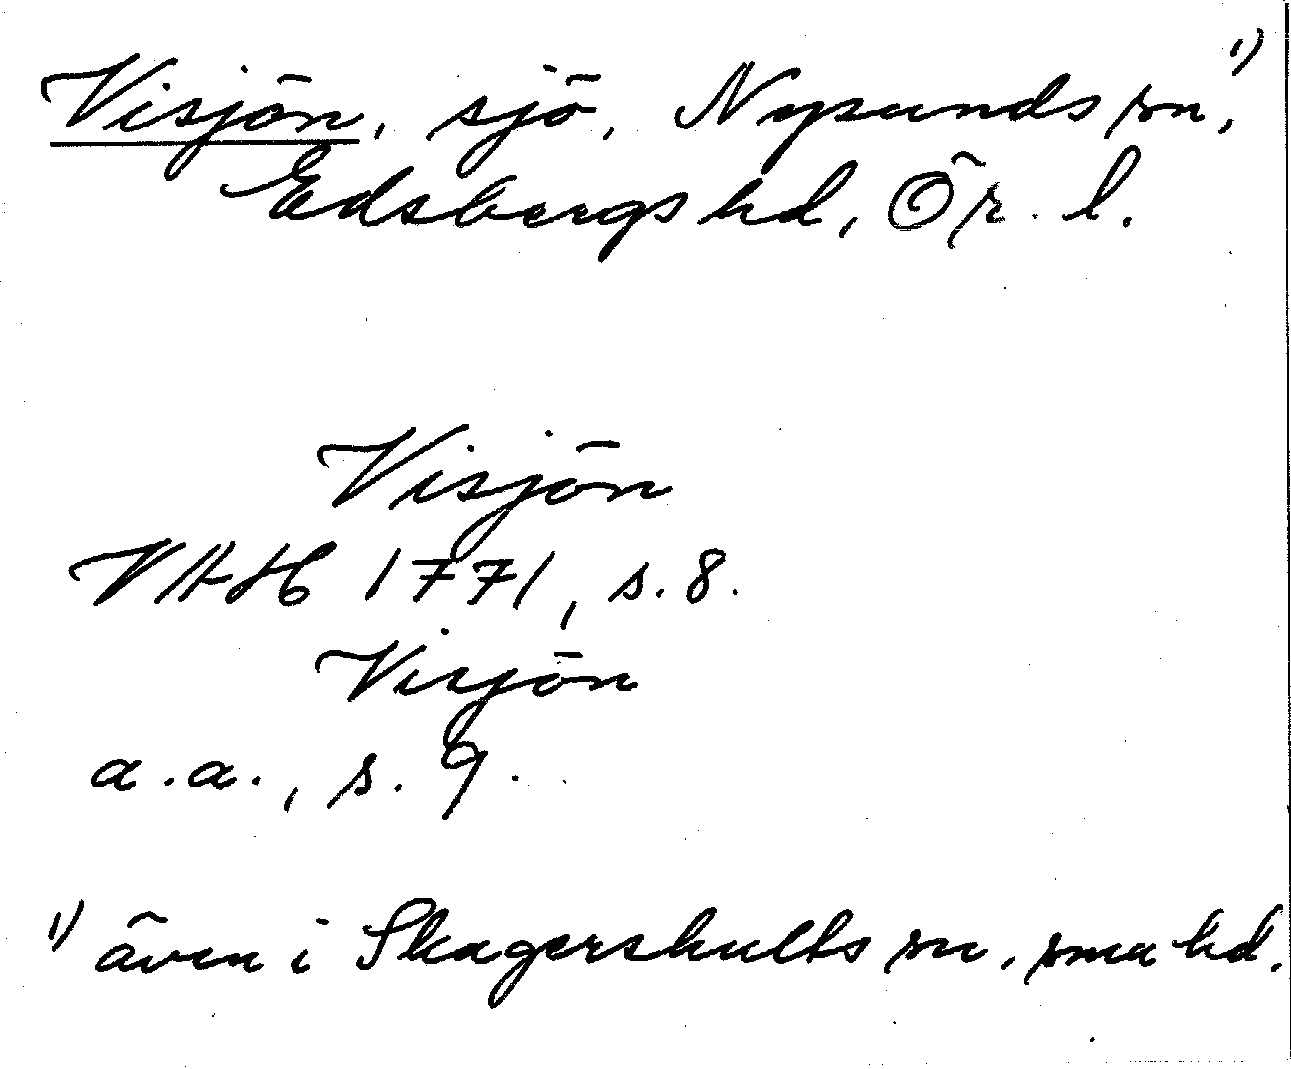 Visjön, sjö, Nysunds sn, 1)
Edsbergs hd, Ör. l.
Visjön
VAH 1771, s. 8.
Visjön
a.a., s. 9.
1) även i Skagershults sn, sma hd.